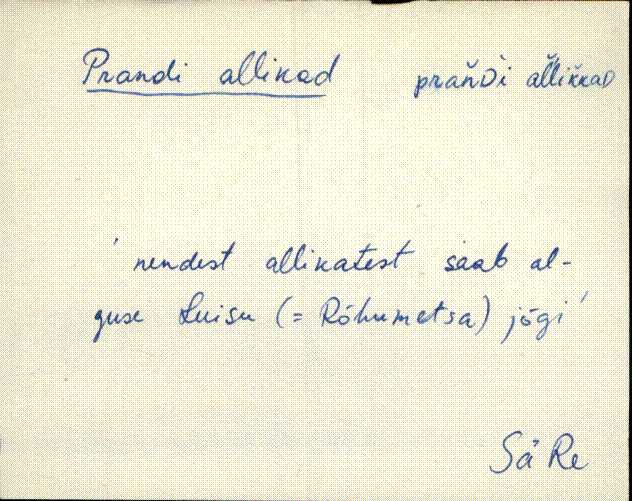 Prandi allikad prań̆ᴅi ał̆łik̆kaᴅ
' nendest allikatest saab al-
guse Luisu (= Rõhumetsa) jõgi '
Sä Re